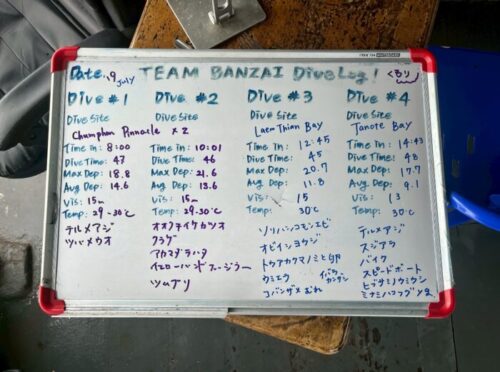 Date: 19 July TEAM BANZAI Dive Log!
Dive #1
Dive Site
Chumphon Pinnacle x 2
Time in: 8:00
Dive Time: 47
Max Dep: 18.8
Avg Dep: 14.6
Vis: 15m
Temp: 29-30℃
テルメアジ
ツバメウオ
Dive #2
Dive Site
Time in: 10:01
Dive Time: 46
Max Dep: 21.6
Avg Dep: 13.6
Vis: 15m
Temp: 29-30℃
クラゲ
アカマダラハタ
ツムブリ
Dive #3
Dive Site
Laem Thian Bay
Time in: 12:45
Dive Time: 45
Max Dep: 20.7
Avg Dep: 11.8
Vis: 15
Temp: 30℃
オビイシヨウジ
トウアカクマノミと卵
ウミエラ
コバンザメ
Dive #4
Dive Site
Tanote Bay
Time in: 14:43
Dive Time: 48
Max Dep: 17.7
Avg Dep: 9.1
Vis: 13
Temp: 30℃
テルメアジ
スジアラ
バイク
スピードボート